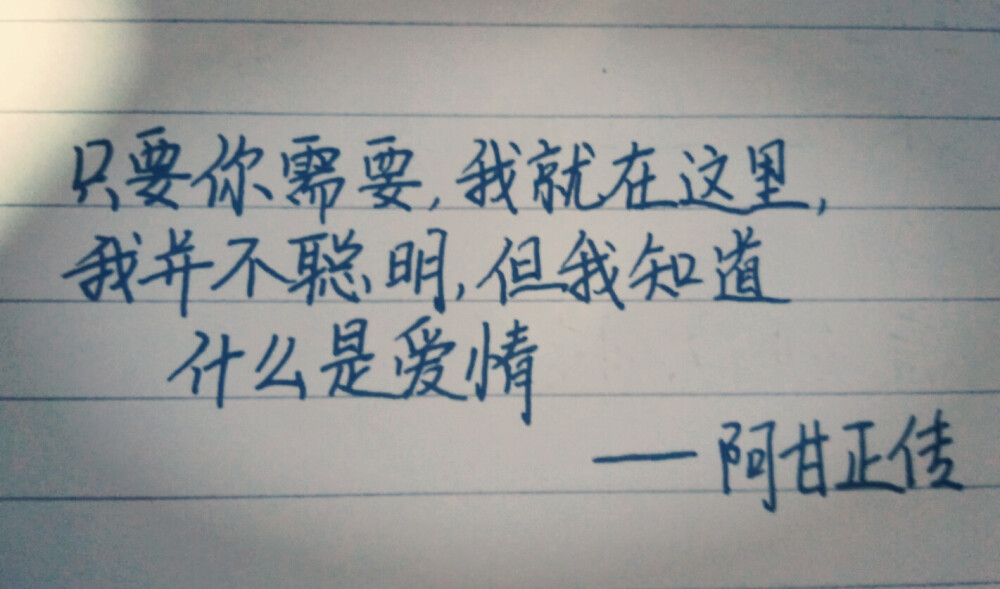 只要你需要,我就在这里,
我并不聪明,但我知道
什么是爱情
——阿甘正传